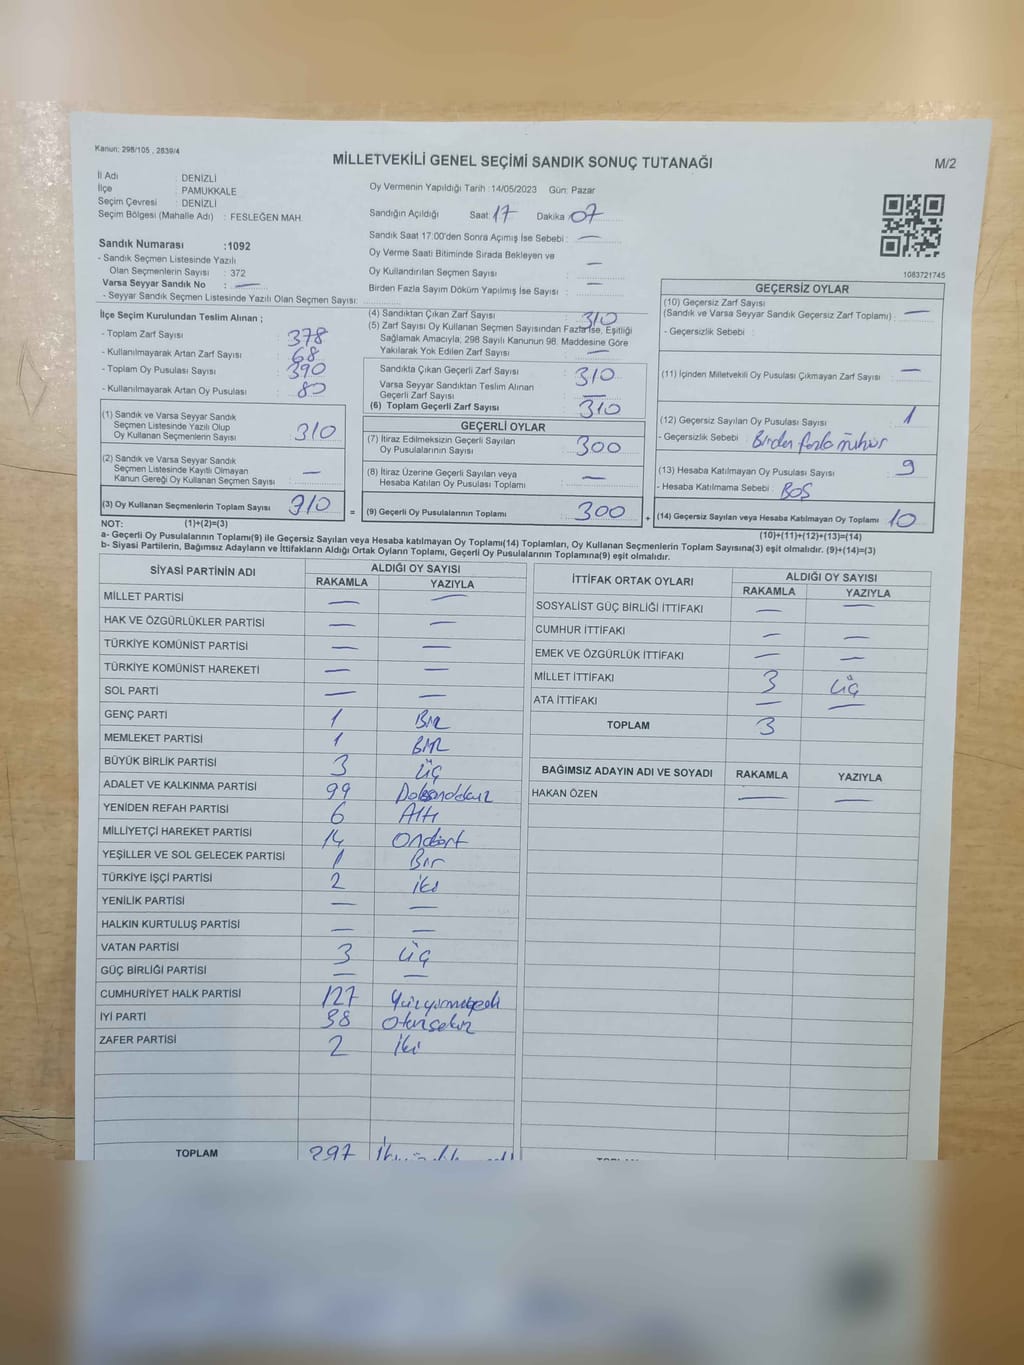 Kanun: 298/105 , 2839/4
MİLLETVEKİLİ GENEL SEÇİMİ SANDIK SONUÇ TUTANAĞI
M/2
İl Adı : DENİZLİ
İlçe : PAMUKKALE
Seçim Çevresi : DENİZLİ
Seçim Bölgesi (Mahalle Adı) : FESLEĞEN MAH.
Sandık Numarası :1092
- Sandık Seçmen Listesinde Yazılı
Olan Seçmenlerin Sayısı : 372
Varsa Seyyar Sandık No : —
- Seyyar Sandık Seçmen Listesinde Yazılı Olan Seçmen Sayısı:
Oy Vermenin Yapıldığı Tarih :14/05/2023 Gün: Pazar
Sandığın Açıldığı Saat: 17 Dakika: 07
Sandık Saat 17:00'den Sonra Açımış İse Sebebi : —
Oy Verme Saati Bitiminde Sırada Bekleyen ve
Oy Kullandırılan Seçmen Sayısı : —
Birden Fazla Sayım Döküm Yapılmış İse Sayısı : —
1083721745
İlçe Seçim Kurulundan Teslim Alınan ;
- Toplam Zarf Sayısı : 378
- Kullanılmayarak Artan Zarf Sayısı : 68
- Toplam Oy Pusulası Sayısı : 390
- Kullanılmayarak Artan Oy Pusulası : 80
(1) Sandık ve Varsa Seyyar Sandık
Seçmen Listesinde Yazılı Olup
Oy Kullanan Seçmenlerin Sayısı : 310
(2) Sandık ve Varsa Seyyar Sandık
Seçmen Listesinde Kayıtlı Olmayan
Kanun Gereği Oy Kullanan Seçmen Sayısı : —
(3) Oy Kullanan Seçmenlerin Toplam Sayısı 310 =
(4) Sandıktan Çıkan Zarf Sayısı : 310
(5) Zarf Sayısı Oy Kullanan Seçmen Sayısından Fazla İse, Eşitliği
Sağlamak Amacıyla; 298 Sayılı Kanunun 98. Maddesine Göre
Yakılarak Yok Edilen Zarf Sayısı : —
Sandıkta Çıkan Geçerli Zarf Sayısı : 310
Varsa Seyyar Sandıktan Teslim Alınan
Geçerli Zarf Sayısı : —
(6) Toplam Geçerli Zarf Sayısı : 310
GEÇERLİ OYLAR
(7) İtiraz Edilmeksizin Geçerli Sayılan
Oy Pusulalarının Sayısı : 300
(8) İtiraz Üzerine Geçerli Sayılan veya
Hesaba Katılan Oy Pusulası Toplamı : —
(9) Geçerli Oy Pusulalarının Toplamı : 300 +
GEÇERSİZ OYLAR
(10) Geçersiz Zarf Sayısı
(Sandık ve Varsa Seyyar Sandık Geçersiz Zarf Toplamı) : —
- Geçersizlik Sebebi :
(11) İçinden Milletvekili Oy Pusulası Çıkmayan Zarf Sayısı : —
(12) Geçersiz Sayılan Oy Pusulası Sayısı : 1
- Geçersizlik Sebebi : Birden fazla mühür
(13) Hesaba Katılmayan Oy Pusulası Sayısı : 9
- Hesaba Katılmama Sebebi : BOŞ
(14) Geçersiz Sayılan veya Hesaba Katılmayan Oy Toplamı : 10
NOT: (1)+(2)=(3)
(10)+(11)+(12)+(13)=(14)
a- Geçerli Oy Pusulalarının Toplamı(9) ile Geçersiz Sayılan veya Hesaba katılmayan Oy Toplamı(14) Toplamları, Oy Kullanan Seçmenlerin Toplam Sayısına(3) eşit olmalıdır. (9)+(14)=(3)
b- Siyasi Partilerin, Bağımsız Adayların ve İttifakların Aldığı Ortak Oyların Toplamı, Geçerli Oy Pusulalarının Toplamına(9) eşit olmalıdır.
SİYASİ PARTİNİN ADI ALDIĞI OY SAYISI
RAKAMLA YAZIYLA
MİLLET PARTİSİ — —
HAK VE ÖZGÜRLÜKLER PARTİSİ — —
TÜRKİYE KOMÜNİST PARTİSİ — —
TÜRKİYE KOMÜNİST HAREKETİ — —
SOL PARTİ — —
GENÇ PARTİ 1 BİR
MEMLEKET PARTİSİ 1 BİR
BÜYÜK BİRLİK PARTİSİ 3 üç
ADALET VE KALKINMA PARTİSİ 99 Doksandokuz
YENİDEN REFAH PARTİSİ 6 Altı
MİLLİYETÇİ HAREKET PARTİSİ 14 Ondört
YEŞİLLER VE SOL GELECEK PARTİSİ 1 Bir
TÜRKİYE İŞÇİ PARTİSİ 2 iki
YENİLİK PARTİSİ — —
HALKIN KURTULUŞ PARTİSİ — —
VATAN PARTİSİ 3 üç
GÜÇ BİRLİĞİ PARTİSİ — —
CUMHURİYET HALK PARTİSİ 127 Yüzyirmiyedi
İYİ PARTİ 38 Otuzsekiz
ZAFER PARTİSİ 2 İki
TOPLAM 297
İTTİFAK ORTAK OYLARI ALDIĞI OY SAYISI
RAKAMLA YAZIYLA
SOSYALİST GÜÇ BİRLİĞİ İTTİFAKI — —
CUMHUR İTTİFAKI — —
EMEK VE ÖZGÜRLÜK İTTİFAKI — —
MİLLET İTTİFAKI 3 üç
ATA İTTİFAKI — —
TOPLAM 3
BAĞIMSIZ ADAYIN ADI VE SOYADI RAKAMLA YAZIYLA
HAKAN ÖZEN — —